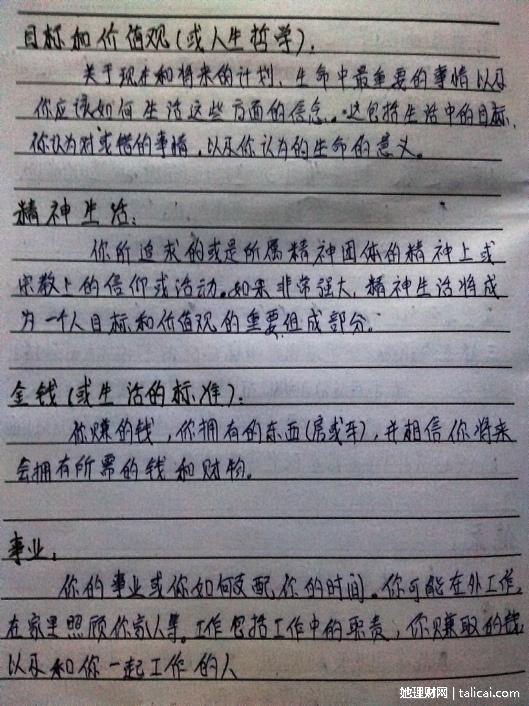 目标和价值观(或人生哲学):
关于现在和将来的计划、生命中最重要的事情以及
你应该如何生活这些方面的信念。这包括生活中的目标,
你认为对或错的事情,以及你认为的生命的意义。
精神生活:
你所追求的或是所属精神团体的精神上或
宗教上的信仰或活动。如果非常强大,精神生活将成
为一个人目标和价值观的重要组成部分。
金钱(或生活的标准):
你赚的钱,你拥有的东西(房或车),并相信你将来
会拥有所需的钱和财物。
事业:
你的事业或你如何支配你的时间。你可能在外工作,
在家里照顾你家人等。工作包括工作中的职责,你赚取的钱
以及和你一起工作的人
她理财网 | talicai.com